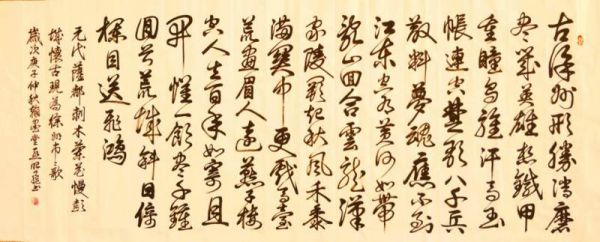 古徐州形勝消磨
尽幾英雄想鐵甲
重瞳烏騅汗血玉
帳連空楚歌八千兵
散料夢魂應不到
江東空有黄河如帶
亂山回合雲龍漢
家陵闕起秋風禾黍
滿關中更戲馬臺
荒畫眉人遠燕子樓
空人生百年如寄且
開懷一飲盡千鍾
回首荒城斜日倚
欄目送飛鴻
元代薩都剌木蘭花慢彭
城懷古現爲徐州市之歌
歲次庚子仲秋翰墨堂主昭書